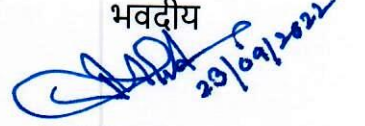 भवदीय
23/09/2022